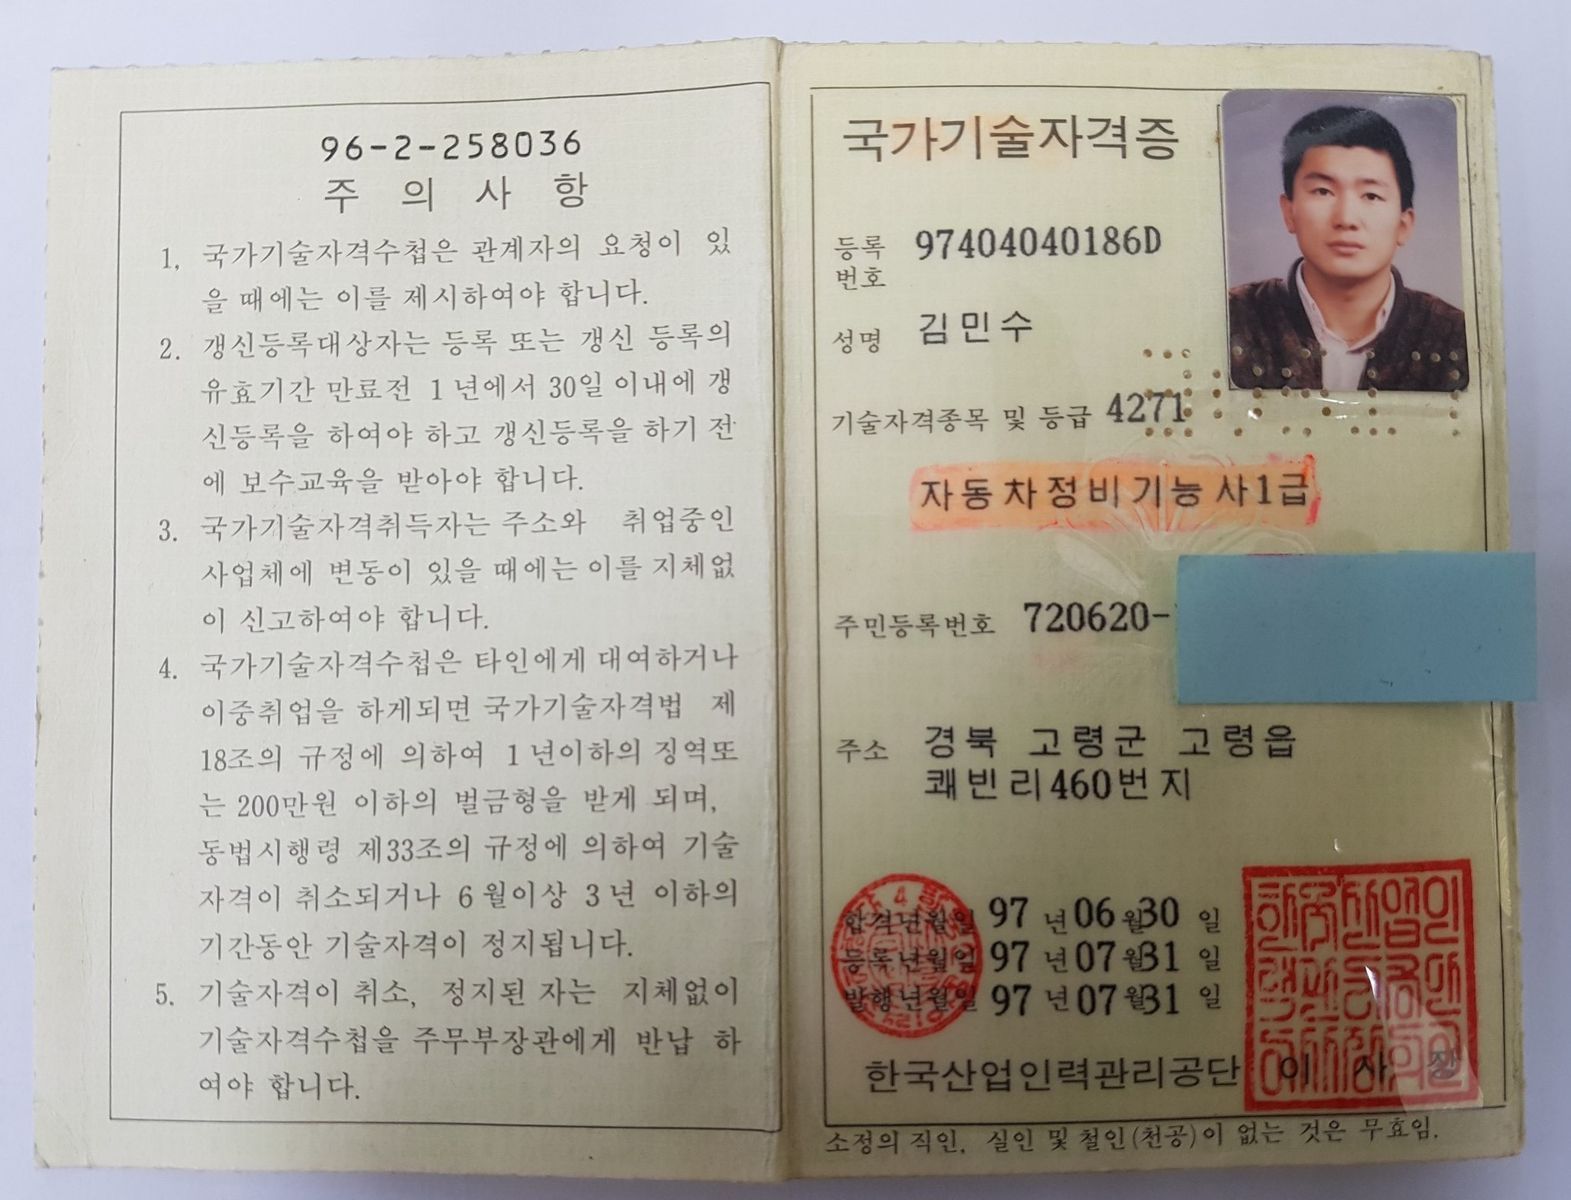 96-2-258036
주 의 사 항
1, 국가기술자격수첩은 관계자의 요청이 있
을 때에는 이를 제시하여야 합니다.
2. 갱신등록대상자는 등록 또는 갱신 등록의
유효기간 만료전 1년에서 30일 이내에 갱
신등록을 하여야 하고 갱신등록을 하기 전
에 보수교육을 받아야 합니다.
3. 국가기술자격취득자는 주소와 취업중인
사업체에 변동이 있을 때에는 이를 지체없
이 신고하여야 합니다.
4. 국가기술자격수첩은 타인에게 대여하거나
이중취업을 하게되면 국가기술자격법 제
18조의 규정에 의하여 1년이하의 징역또
는 200만원 이하의 벌금형을 받게 되며,
동법시행령 제33조의 규정에 의하여 기술
자격이 취소되거나 6월이상 3년 이하의
기간동안 기술자격이 정지됩니다.
5. 기술자격이 취소, 정지된 자는 지체없이
기술자격수첩을 주무부장관에게 반납 하
여야 합니다.
국가기술자격증
등록번호 97404040186D
성명 김민수
기술자격종목 및 등급 4271
자동차정비기능사1급
주민등록번호 720620-
주소 경북 고령군 고령읍
쾌빈리460번지
합격년월일 97 년 06 월 30 일
등록년월일 97 년 07 월 31 일
발행년월일 97 년 07 월 31 일
한국산업인력관리공단 이 사 장
소정의 직인, 실인 및 철인(천공)이 없는 것은 무효임.